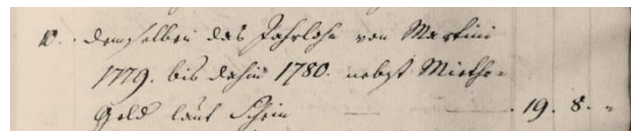 10. demselben das Jahrlohn von Martini
1779. bis dahin 1780. nebst Mieths-
Geld laut Schein — . 19. 8. "